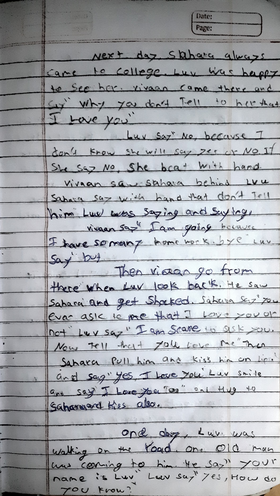 Date:
Page:
Next day Sahara always
came to college Luv was happy
to see her. vivaan came there and
say" Why you don't Tell to her that
I Love you"
Luv say" No, because I
don't know she will say yes or No. If
She say No. She beat with hand
vivaan saw sahara behind Luv
Sahara say with hand that don't Tell
him Luv was saying and saying,
vivaan say" I am going because
I have so many home work. bye Luv
say' but
Then vivaan go from
there when Luv look back. He saw
Sahara and get shocked. Sahara say' you
Ever ask to me that I Love you or
not' Luv say" I am scare to ask you.
Now Tell that you Love me" Then
Sahara Pull him and kiss him on
and say" yes, I Love you' Luv smile
and say' I Love you Too" and Hug to
Sahara and kiss also.
One day, Luv was
walking on the road one old man
was coming to him He say" your
name is Luv' Luv say' yes, How do
you know?'